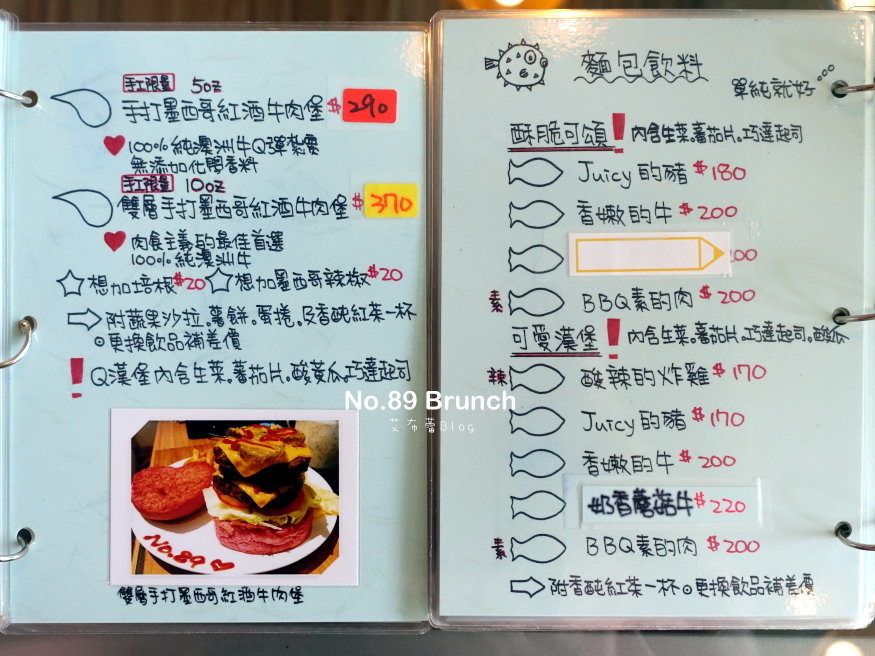 手工限量 5oz
手打墨西哥紅酒牛肉堡 $290
100%純澳洲牛Q彈紮實
無添加化學香料
手工限量 10oz
雙層手打墨西哥紅酒牛肉堡 $370
肉食主義的最佳首選
100%純澳洲牛
想加培根$20 想加墨西哥辣椒$20
附蔬果沙拉。薯餅。蛋捲。及香醇紅茶一杯
⊙更換飲品補差價
! Q漢堡內含生菜。蕃茄片。酸黃瓜。巧達起司
No.89♥
雙層手打墨西哥紅酒牛肉堡
麵包飲料
單純就好。。。
酥脆可頌! 內含生菜。蕃茄片。巧達起司
Juicy的豬 $180
香嫩的牛 $200
00
素 BBQ素的肉 $200
可愛漢堡! 內含生菜。蕃茄片。巧達起司。酸瓜
辣 酸辣的炸雞 $170
Juicy的豬 $170
香嫩的牛 $200
奶香蘑菇牛 $220
素 BBQ素的肉 $200
附香醇紅茶一杯⊙更換飲品補差價
No.89 Brunch
艾布蕾Blog